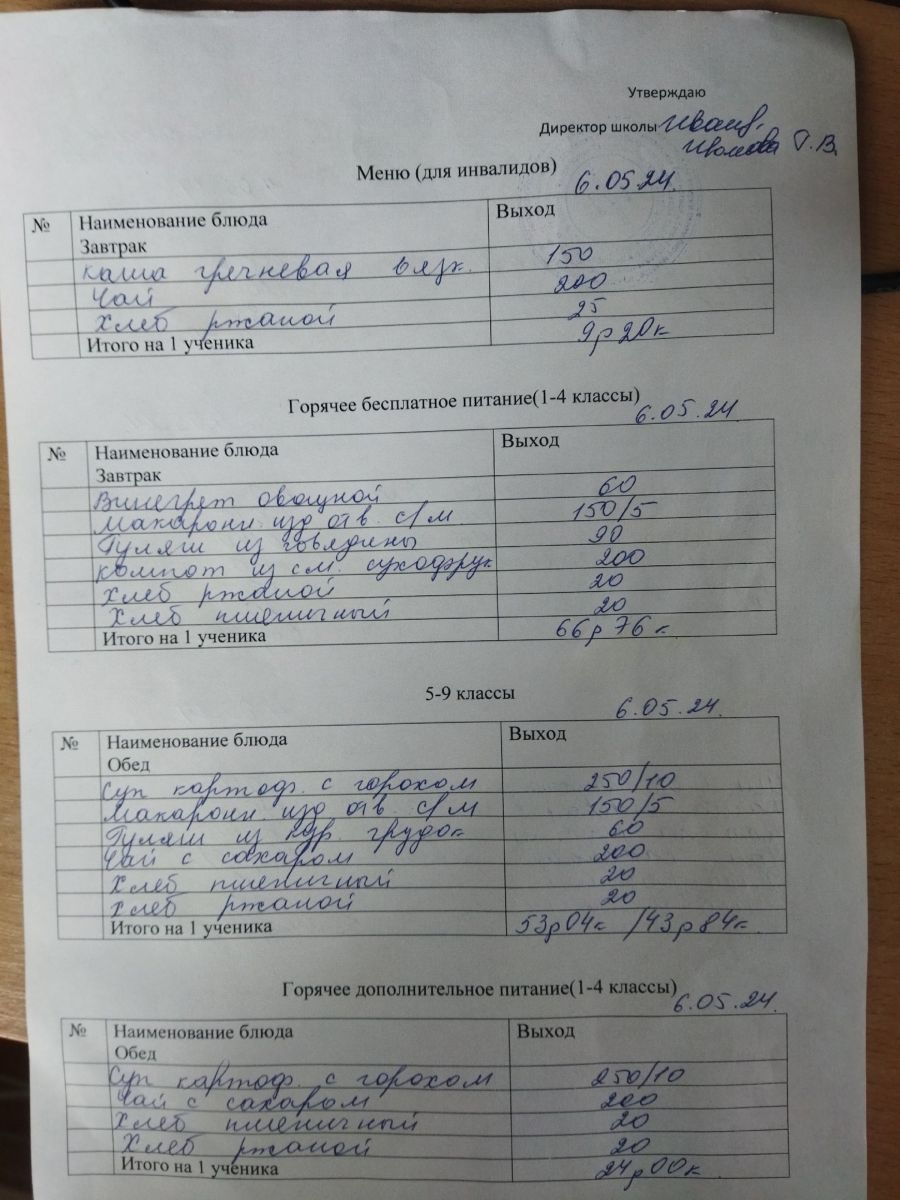 Утверждаю
Директор школы
Г.В.
Меню (для инвалидов)
6.05.24.
№ Наименование блюда Выход
Завтрак
каша гречневая вязк. 150
Чай 200
Хлеб ржаной 25
Итого на 1 ученика 9р20к
Горячее бесплатное питание(1-4 классы)
6.05.24
№ Наименование блюда Выход
Завтрак
Винегрет овощной 60
Макарон. изд отв. с/м 150/5
Гуляш из говядины 90
компот из см. сухофрук 200
Хлеб ржаной 20
Хлеб пшеничный 20
Итого на 1 ученика 66р76к
5-9 классы
6.05.24.
№ Наименование блюда Выход
Обед
Суп картоф. с горохом 250/10
Макарон. изд отв. с/м 150/5
Гуляш из кур. грудок 60
Чай с сахаром 200
Хлеб пшеничный 20
Хлеб ржаной 20
Итого на 1 ученика 53р04к /43р84к
Горячее дополнительное питание(1-4 классы)
6.05.24.
№ Наименование блюда Выход
Обед
Суп картоф. с горохом 250/10
Чай с сахаром 200
Хлеб пшеничный 20
Хлеб ржаной 20
Итого на 1 ученика 24р00к